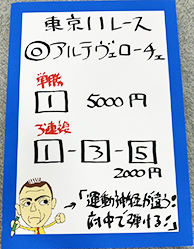 東京11レース
◎アルテヴェローチェ
単勝
1 5000円
3連複
1-3-5
2000円
「運動神経が違う!
府中で弾ける!」